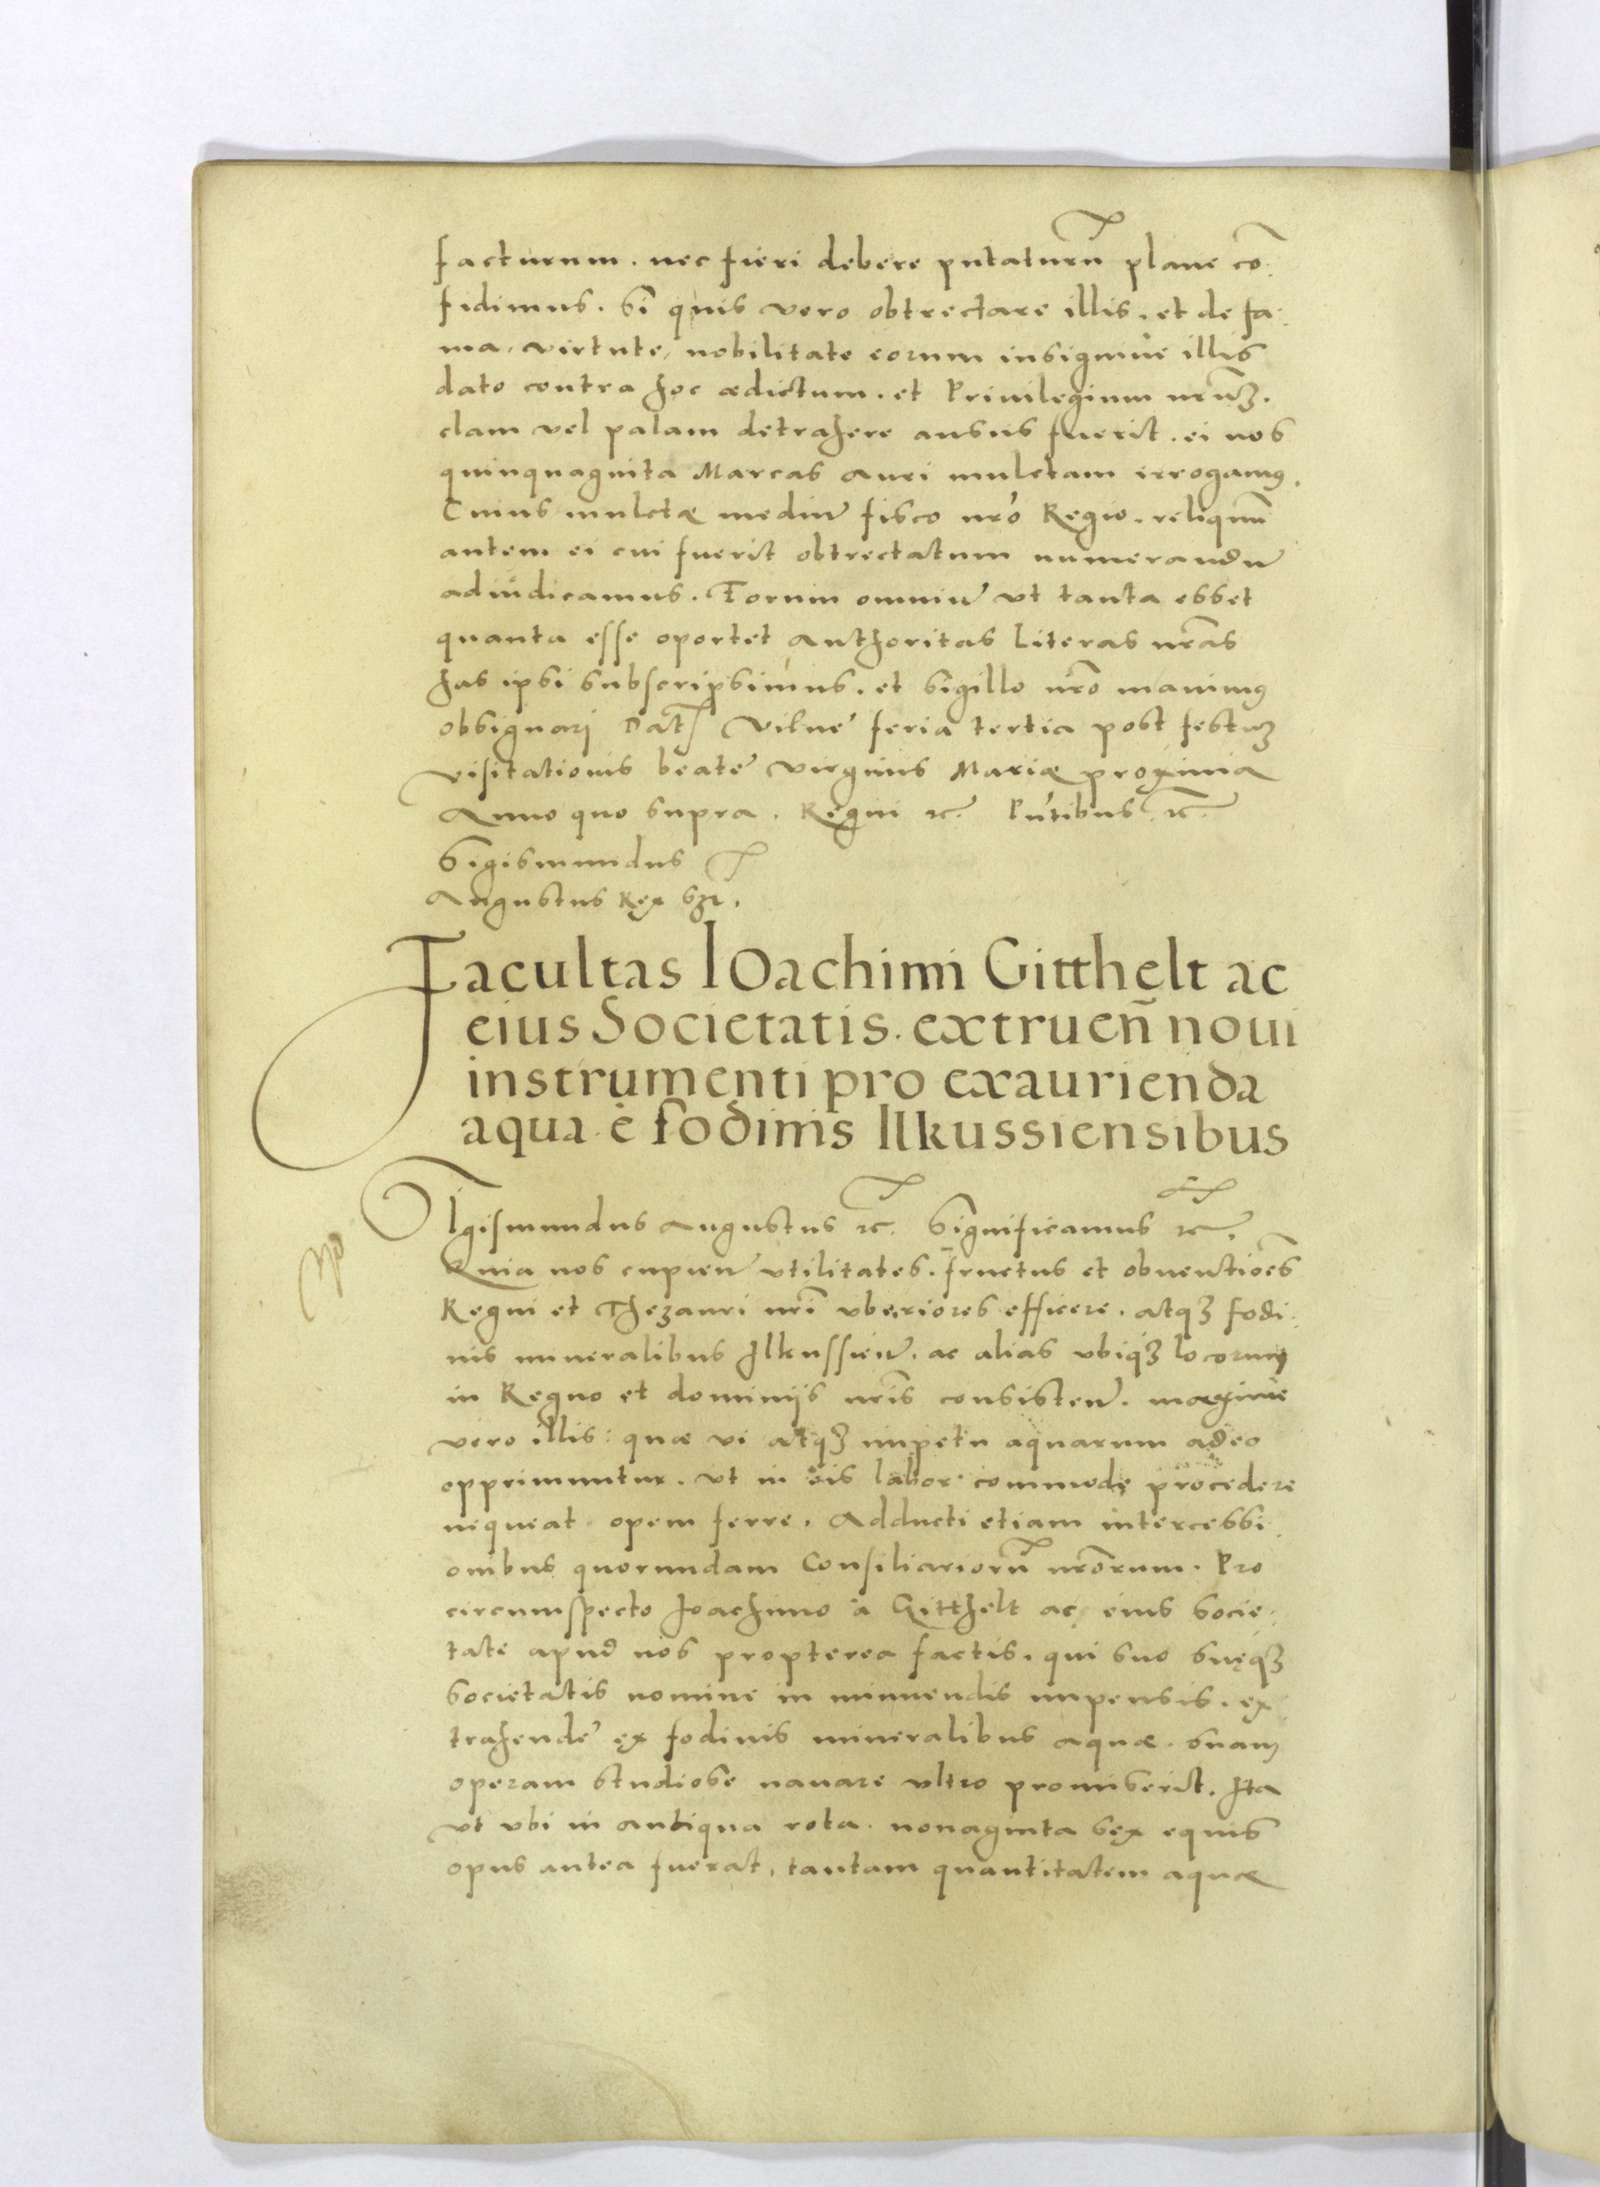 facturum. nec fieri debere putaturū plane cō
fidimus. Si quis vero obtrectare illis. et de fa
ma, virtute, nobilitate eorum insignive illis
dato contra hoc ædictum. et Privilegium nrūȝ.
clam vel palam detrahere ausus fuerit. ei nos
quinquaginta Marcas auri mulctam irrogamus.
Cuius mulctæ mediū fisco nrō Regio. reliquū
autem ei cui fuerit obtrectatum numerandū
adiudicamus. Eorum omniū vt tanta esset
quanta esse oportet authoritas literas nrās
has ipsi subscripsimus. et sigillo nrō manimus
obsignari Dat Vilne feria tertia post festuȝ
visitationis beate virginis Mariæ proxima
Anno quo supra. Regni &c. Pntibus &c
Sigismundus
Augustus Rex sst.
Facultas IOachimi Gitthelt ac
eius Societatis. extrueñ noui
instrumenti pro exaurienda
aqua è fodinis Ilkussiensibus
SIgismundus Augustus &c. Significamus &c.
Quia nos cupieñ vtilitates. fructus et obventiōes
Regni et Thezauri nrī vberiores efficere. atqȝ fodi
nis mineralibus Ilkussieñ. ac alias vbiqȝ locorum
in Regno et dominijs nrīs consisteñ. maxime
vero illis: quæ vi atqȝ impetu aquarum adeo
opprimuntur. vt in eis labor commode procedere
nequeat opem ferre. Adducti etiam intercessi
onibus quorundam Consiliariorū nrōrum. Pro
circumspecto Joachimo à Gitthelt ac eius socie
tate apud nos propterea factis. qui suo suęqȝ
societatis nomine in minuendis impensis. ex
trahende ex fodinis mineralibus aquæ. suam
operam studiose navare vltro promiserit. Ita
vt vbi in antiqua rota. nonaginta sex equis
opus antea fuerat, tantam quantitatem aquæ